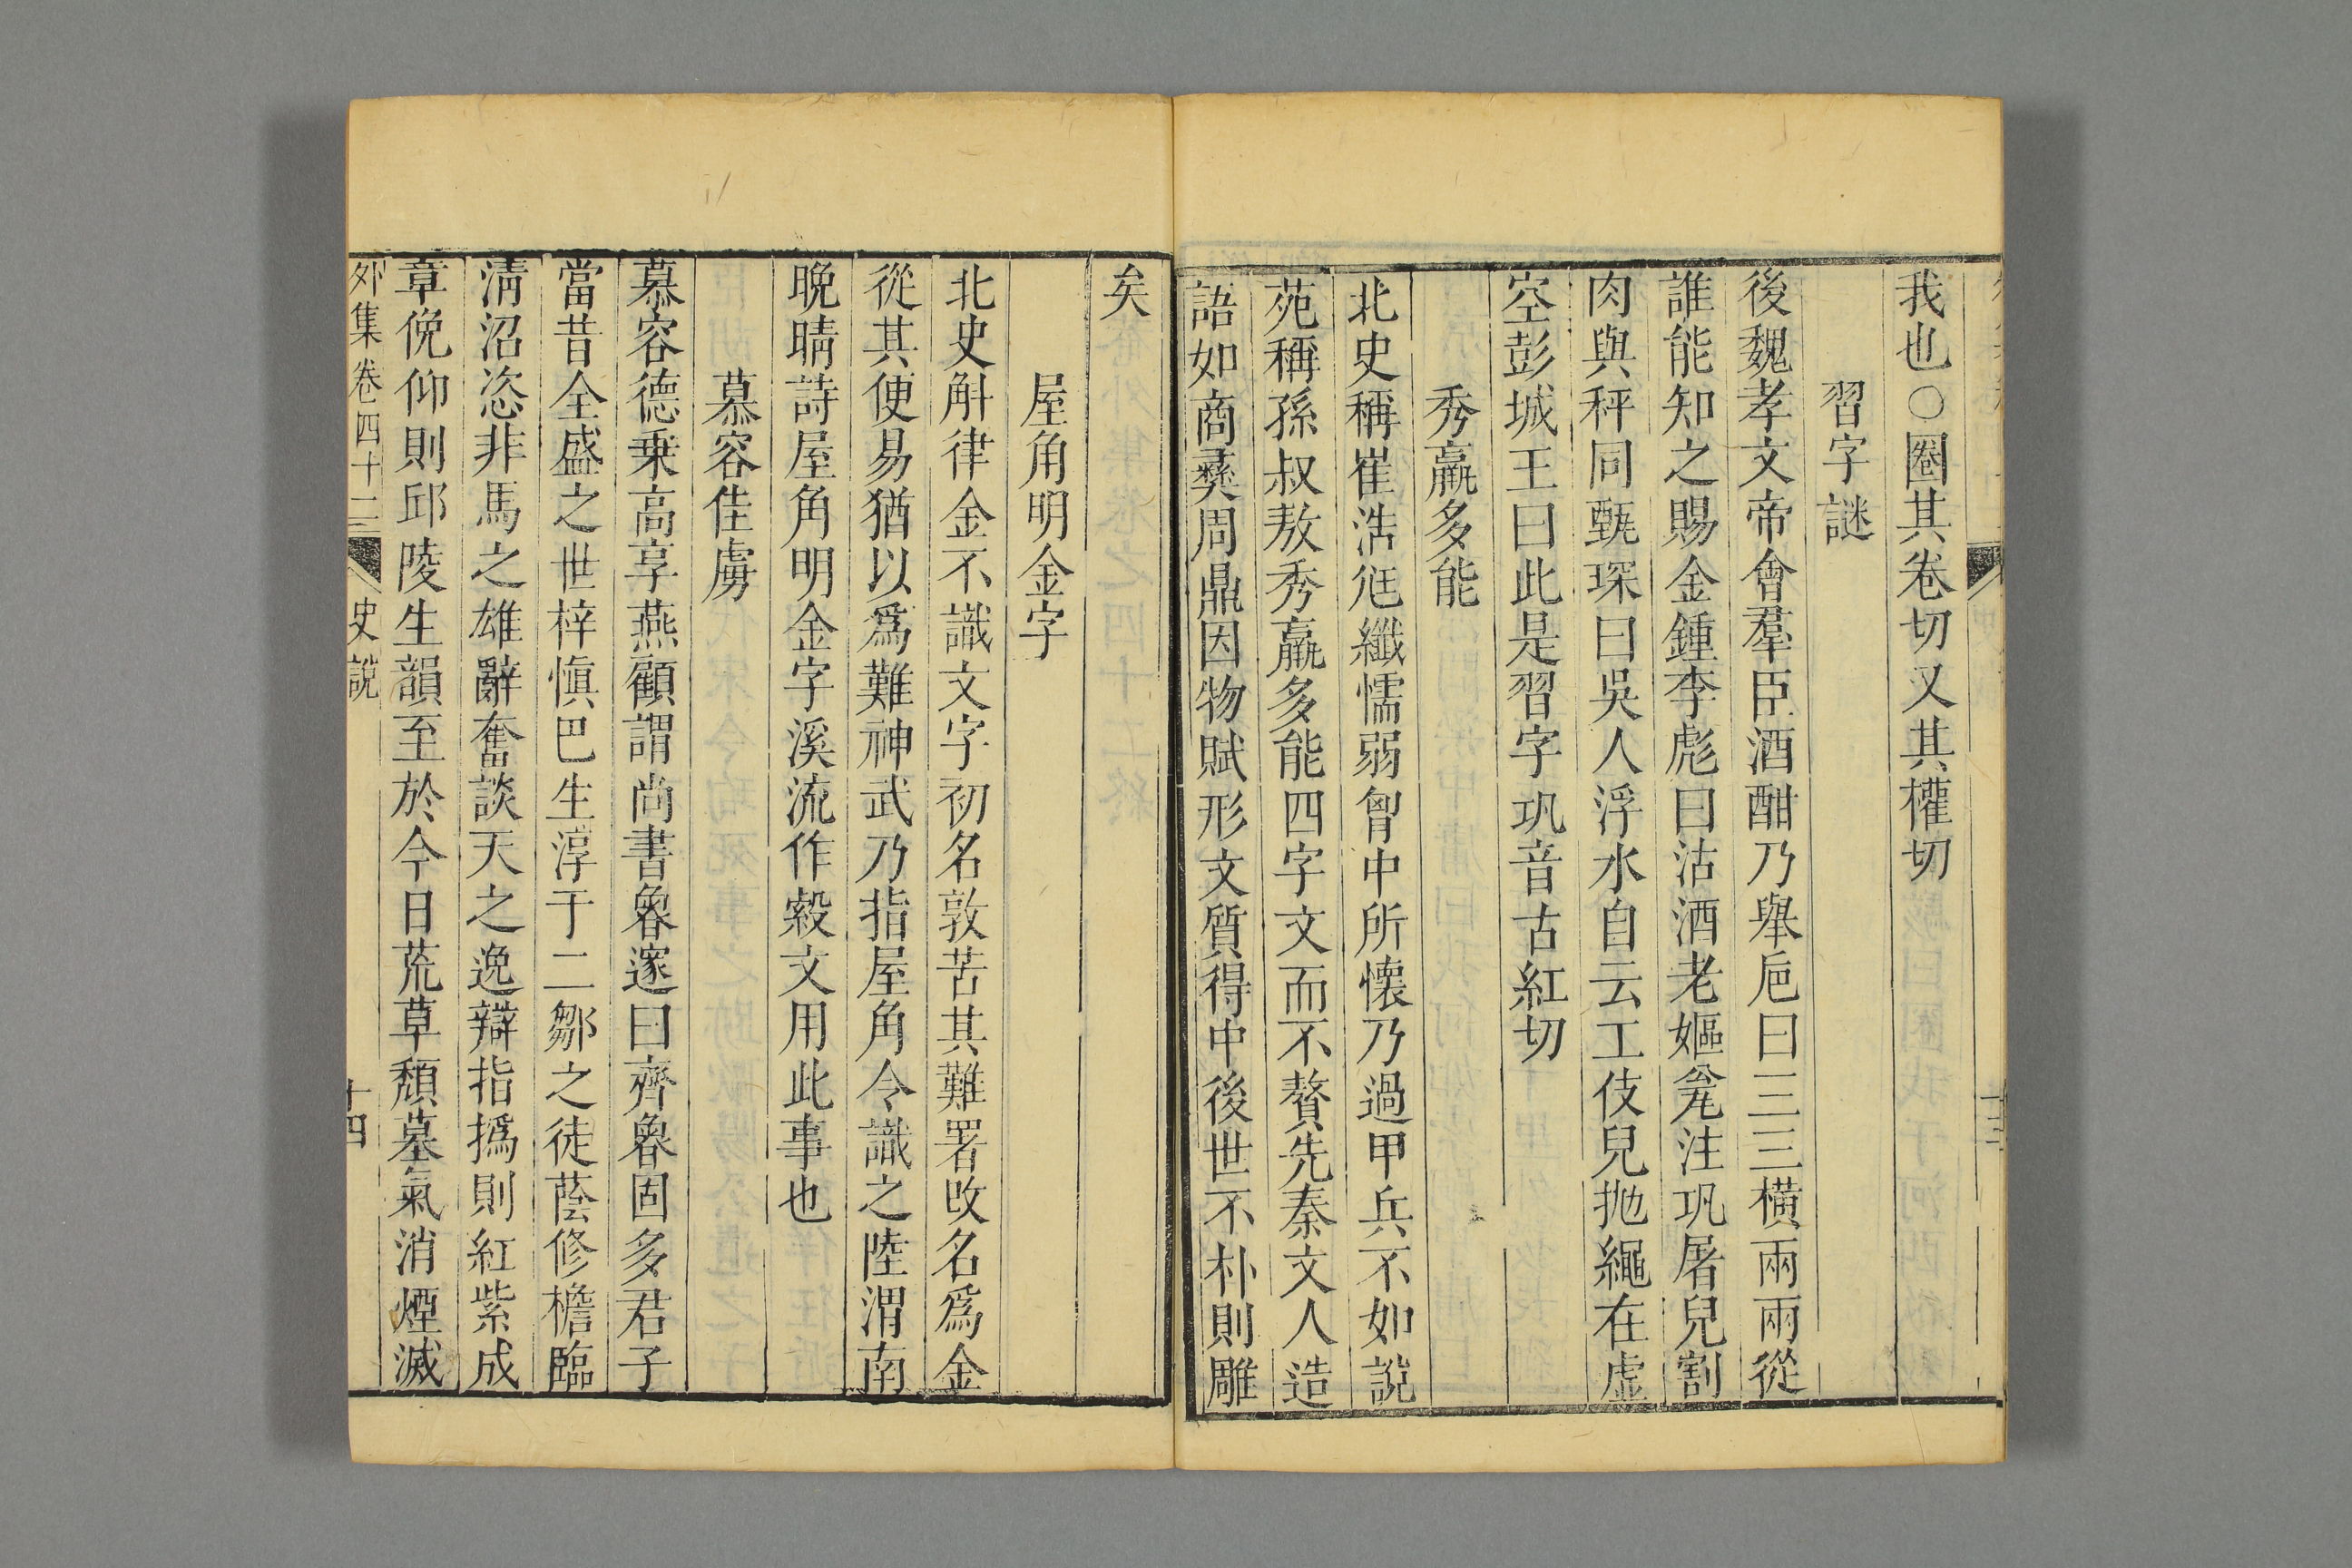 我也○圈其卷切又其權切
習字謎
後魏孝文帝會羣臣酒酣乃舉巵曰三三橫兩兩從
誰能知之賜金鍾李彪曰沽酒老嫗瓮注㼦屠兒割
肉與秤同甄琛曰吳人浮水自云工伎兒拋繩在虛
空彭城王曰此是習字㼦音古紅切
秀羸多能
北史稱崔浩尫纖懦弱胷中所懷乃過甲兵不如說
苑稱孫叔敖秀羸多能四字文而不贅先秦文人造
語如商彝周鼎因物賦形文質得中後世不朴則雕
矣
屋角明金字
北史斛律金不識文字初名敦苦其難署改名爲金
從其便易猶以爲難神武乃指屋角令識之陸渭南
晚晴詩屋角明金字溪流作縠文用此事也
慕容佳虜
慕容德乗高享燕顧謂尚書魯邃曰齊魯固多君子
當昔全盛之世梓愼巴生淳于二鄒之徒蔭修檐臨
清沼恣非馬之雄辭奮談天之逸辯指撝則紅紫成
章俛仰則邱陵生韻至於今日荒草頽墓氣消煙滅
外集卷四十二
史說
十四